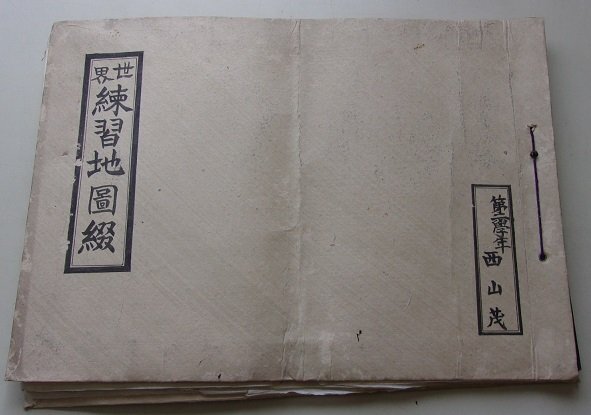 世界
練習地圖綴
第二學年
西山茂